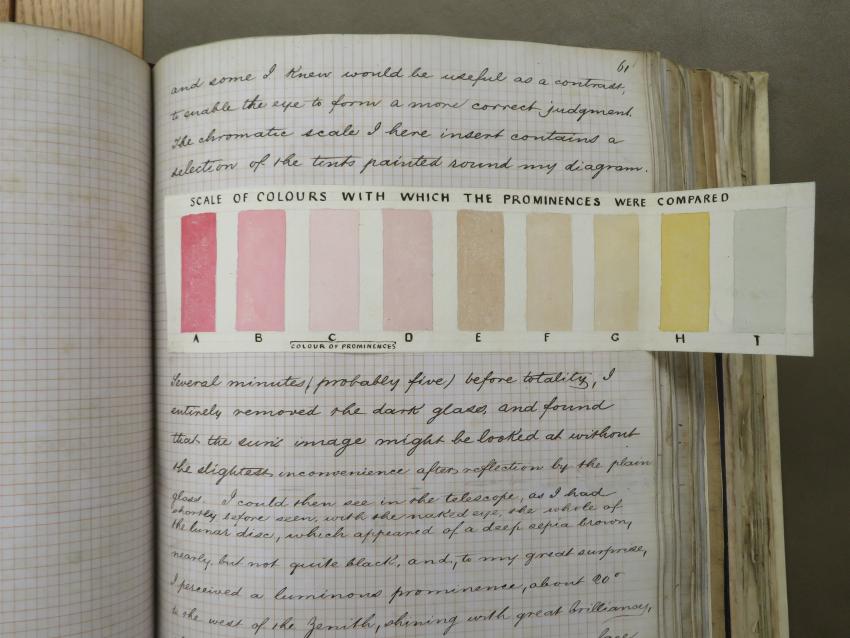 61
and some I knew would be useful as a contrast,
to enable the eye to form a more correct judgment.
The chromatic scale I here insert contains a
selection of the tints painted round my diagram.
SCALE OF COLOURS WITH WHICH THE PROMINENCES WERE COMPARED
A B C D E F G H T
COLOUR OF PROMINENCES
Several minutes (probably five) before totality, I
entirely removed the dark glass, and found
that the sun's image might be looked at without
the slightest inconvenience after reflection by the plain
glass. I could then see in the telescope, as I had
shortly before seen, with the naked eye, the whole of
the lunar disc, which appeared of a deep sepia brown,
nearly, but not quite black, and, to my great surprise,
I perceived a luminous prominence, about 20°
to the west of the Zenith, shining with great brilliancy,